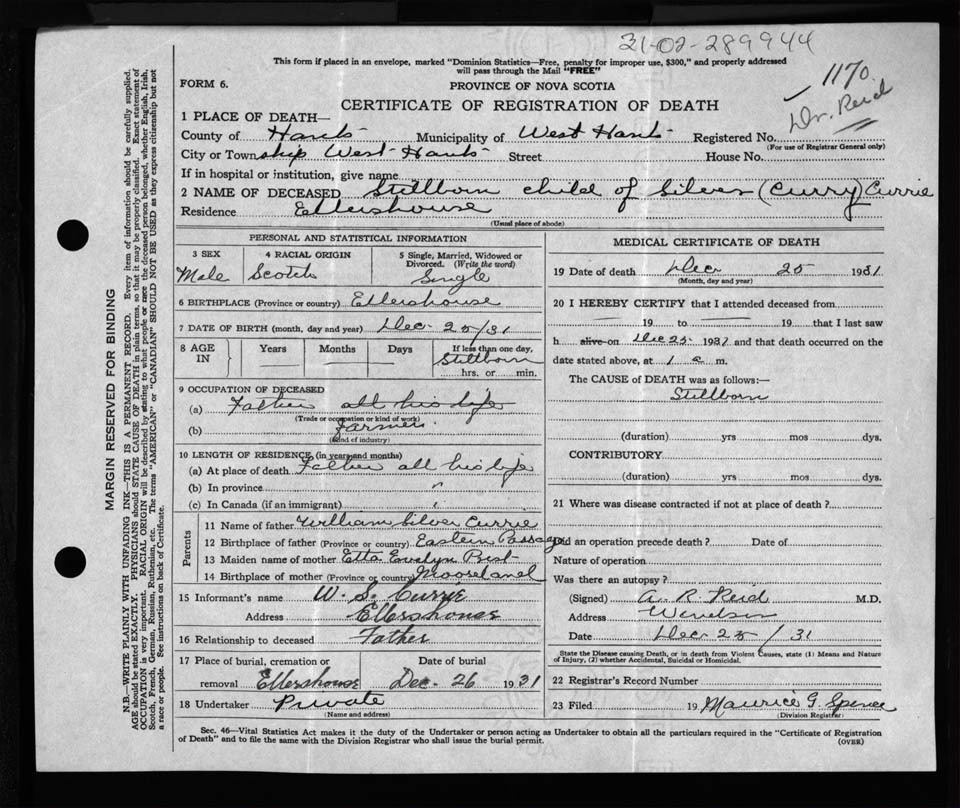 31-02-289944
This form if placed in an envelope, marked "Dominion Statistics—Free, penalty for improper use, $300," and properly addressed
will pass through the Mail "FREE"
FORM 6.
PROVINCE OF NOVA SCOTIA
1170
Dr. Reid
CERTIFICATE OF REGISTRATION OF DEATH
1 PLACE OF DEATH—
County of Hants Municipality of West Hants Registered No.
(For use of Registrar General only)
City or Township West Hants Street House No.
If in hospital or institution, give name
2 NAME OF DECEASED Stillborn child of Silver (Curry) Currie
Residence Ellershouse
(Usual place of abode)
PERSONAL AND STATISTICAL INFORMATION
3 SEX 4 RACIAL ORIGIN 5 Single, Married, Widowed or
Divorced. (Write the word)
Male Scotch Single
6 BIRTHPLACE (Province or country) Ellershouse
7 DATE OF BIRTH (month, day and year) Dec 25/31
8 AGE IN Years Months Days If less than one day,
Stillborn
hrs. or min.
9 OCCUPATION OF DECEASED
(a) Father all his life
(Trade or occupation or kind of work)
(b) Farmer
(Kind of industry)
10 LENGTH OF RESIDENCE (in years and months)
(a) At place of death Father all his life
(b) In province "
(c) In Canada (if an immigrant)
Parents
11 Name of father William Silver Currie
12 Birthplace of father (Province or country) Eastern Passage
13 Maiden name of mother Etta Evelyn Prest
14 Birthplace of mother (Province or country) Mooseland
15 Informant's name W. S. Currie
Address Ellershouse
16 Relationship to deceased Father
17 Place of burial, cremation or Date of burial
removal Ellershouse Dec. 26 1931
18 Undertaker Private
(Name and address)
MEDICAL CERTIFICATE OF DEATH
19 Date of death Dec 25 1931
(Month, day and year)
20 I HEREBY CERTIFY that I attended deceased from
19 to 19 that I last saw
h alive on Dec 25 1931 and that death occurred on the
date stated above, at 1 a m.
The CAUSE of DEATH was as follows:—
Stillborn
(duration) yrs mos dys.
CONTRIBUTORY
(duration) yrs mos dys.
21 Where was disease contracted if not at place of death?
Did an operation precede death? Date of
Nature of operation
Was there an autopsy?
(Signed) A. R. Reid M.D.
Address Windsor
Date Dec 25/31
State the Disease causing Death, or in death from Violent Causes, state (1) Means and Nature
of Injury, (2) whether Accidental, Suicidal or Homicidal.
22 Registrar's Record Number
23 Filed 19 Maurice G. Spence
(Division Registrar)
Sec. 46—Vital Statistics Act makes it the duty of the Undertaker or person acting as Undertaker to obtain all the particulars required in the "Certificate of Registration
of Death" and to file the same with the Division Registrar who shall issue the burial permit.
(OVER)
MARGIN RESERVED FOR BINDING
N.B.—WRITE PLAINLY WITH UNFADING INK—THIS IS A PERMANENT RECORD. Every item of information should be carefully supplied.
AGE should be stated EXACTLY. PHYSICIANS should STATE CAUSE OF DEATH in plain terms, so that it may be properly classified. Exact statement of
OCCUPATION is very important. RACIAL ORIGIN will be described by stating to what people or race the deceased person belonged, whether English, Irish,
Scotch, French, German, Russian, Ruthenian, etc. The terms "AMERICAN" or "CANADIAN" SHOULD NOT BE USED as they express citizenship but not
a race or people. See instructions on back of Certificate.